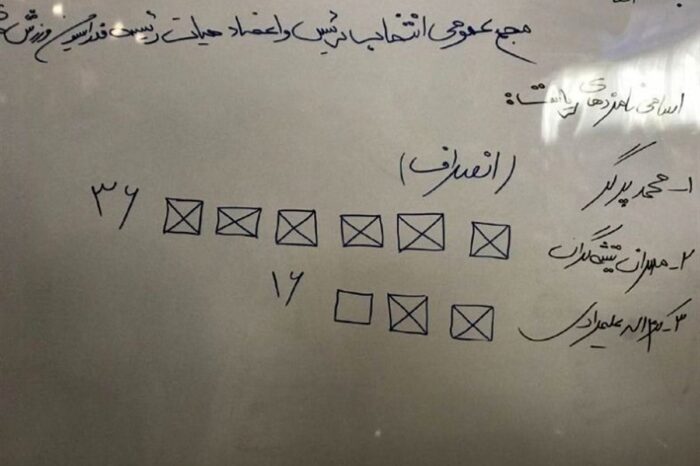 مجمع عمومی انتخاب رئیس و اعضاء هیات رئیسه فدراسیون ورزش
اسامی نامزدهای ریاست:
۱- محمد پرگر
(انصراف)
۲- مهران تیشه‌گران
۳۶
۳- کرم‌اله علیمرادی
۱۶